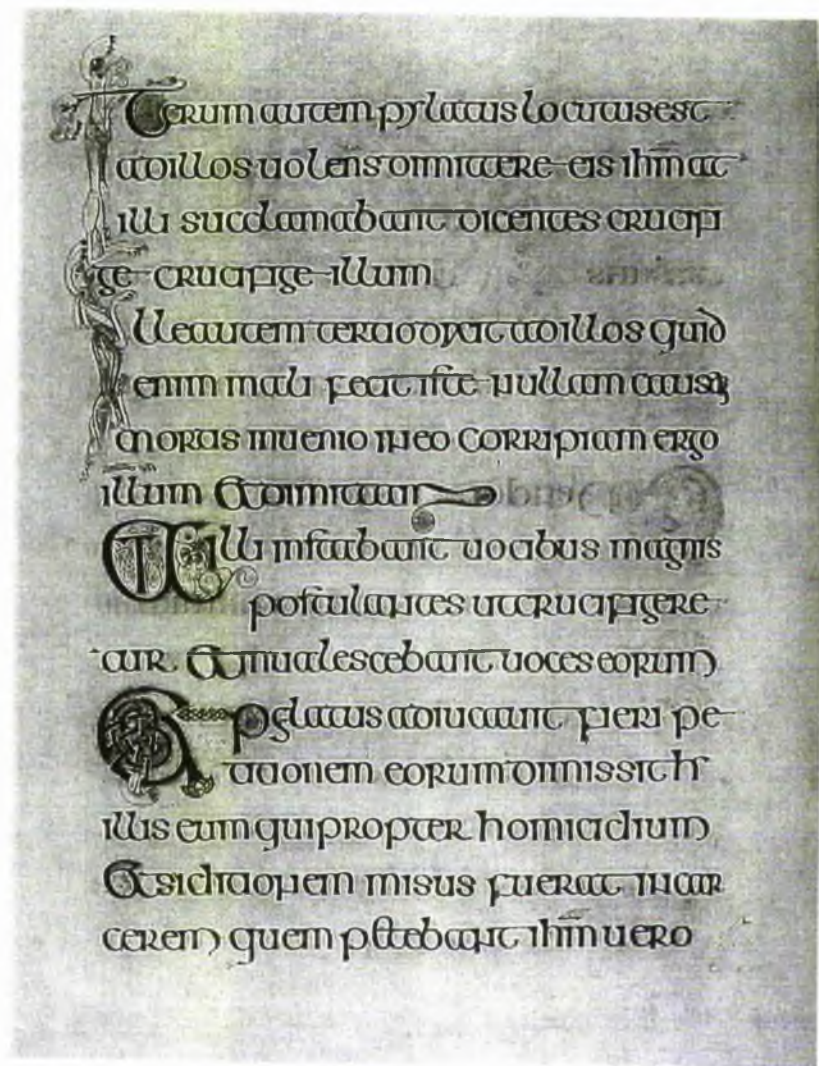 Iterum autem pylatus locutus est
ad illos uolens dimittere eis ihm at
illi succlamabant dicentes crucifi
ge crucifige illum
Ille autem tertio dixit ad illos quid
enim mali fecit iste nullam causā
mortis inuenio in eo corripiam ergo
illum et dimittam
At illi instabant uocibus magnis
postulantes ut crucifigere
tur. Et inualescebant uoces eorum
Et pylatus adiudicauit fieri pe
titionem eorum dimissit h
illis eum qui propter homicidium
et siditionem misus fuerat in car
cerem quem petebant ihm uero